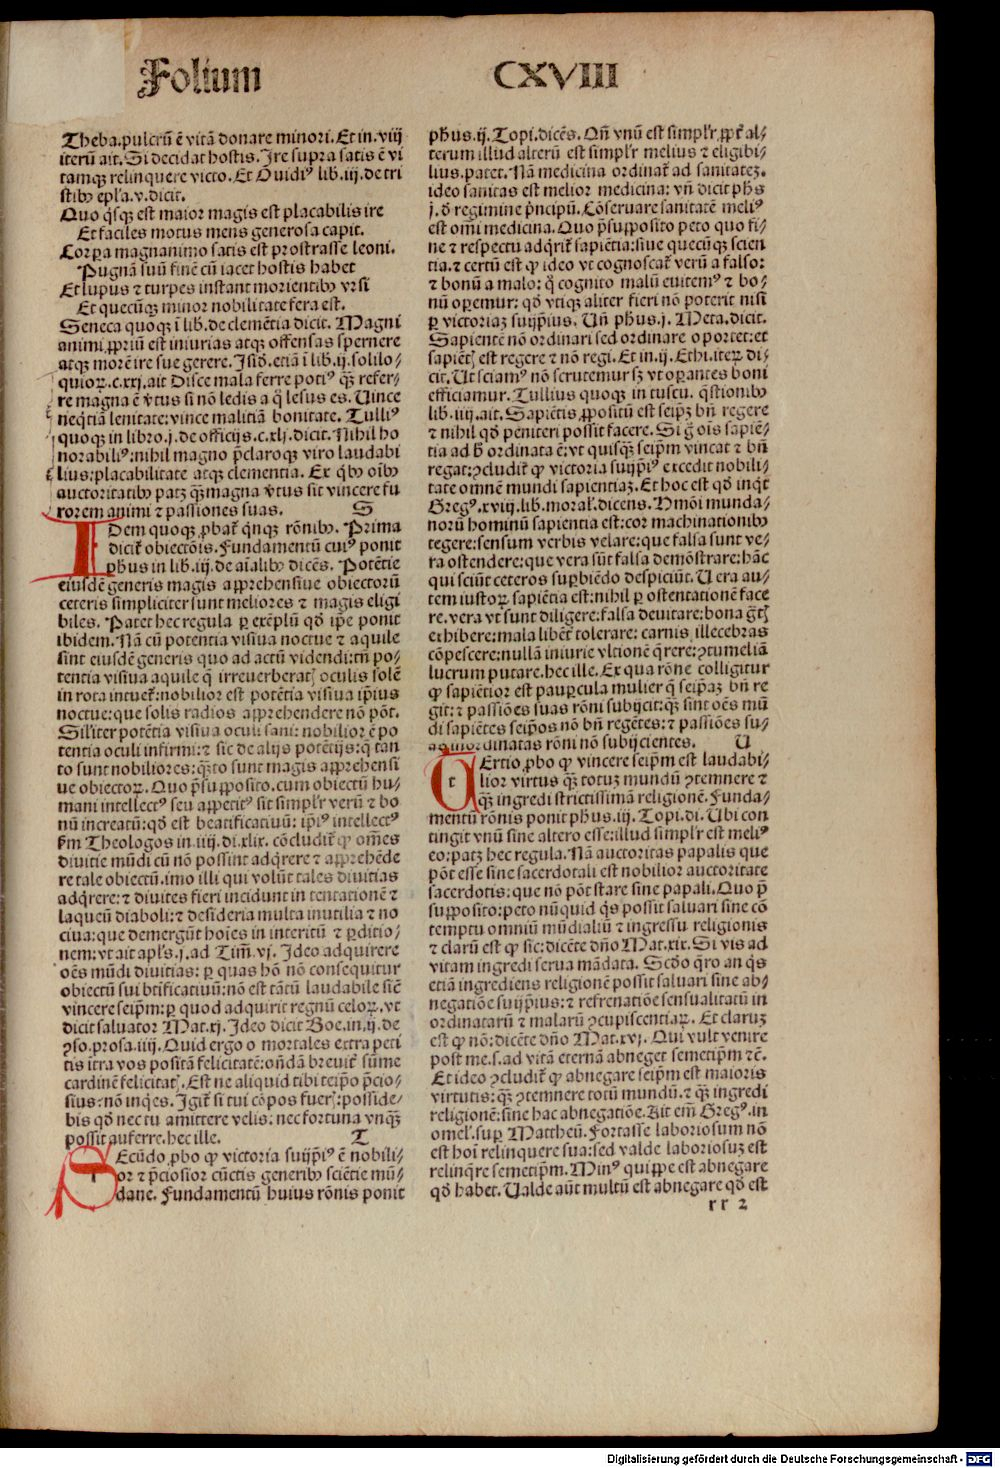 Folium CXVIII
Theba.pulcrū ē vitā donare minori.Et in.viij
iterū ait.Si decidat hostis.Ire supra satis ē vi
tamqꝫ relinquere victo.Et Ouidiꝰ lib.iij.de tri
stibꝰ epl'a.v.dicit.
Quo q̇sqꝫ est maior magis est placabilis ire
Et faciles motus mens generosa capit.
Corpꝑa magnanimo satis est prostrasse leoni.
Pugnā suū finē cū iacet hostis habet
Et lupus ⁊ turpes instant morientibꝰ vrsi
Et quecūqꝫ minor nobilitate fera est.
Seneca quoqꝫ ī lib.de clemētia dicit. Magni
animi ꝓpriū est iniurias atqꝫ offensas spernere
atqꝫ morē ire sue gerere. Ju͂d. etiā ī lib.ij.solilo⸗
quioꝝ.c.xxj.ait Disce mala ferre potiꝰ qꝫ̄ refer⸗
re magna ē v̓tus si nō ledis a q̇ lesus es. Uince
neq̄tiā lenitate:vince malitiā bonitate. Tulliꝰ
quoqꝫ in libro.j.de officijs.c.xlj.dicit.Nihil ho
norabiliꝰ:nihil magno p̄claroqꝫ viro laudabi
lius:placabilitate atqꝫ clementia. Ex q̇bꝰ oībꝰ
auctoritatibꝰ patꝫ qꝫ̄ magna v̓tus sit vincere fu
rorem animi ⁊ passiones suas. S
IDem quoqꝫ ꝓbat̄ q̇nqꝫ rōnibꝰ. Prima
dicit̄ obiectōis. Fundamentū cuiꝰ ponit
ph̄us in lib.iij.de aīalibꝰ dicēs. Potētie
eiusdē generis magis apprehensiue obiectorū
ceteris simpliciter sunt meliores ⁊ magis eligi
biles. Patet hec regula ꝑ exēplū qd̓ ip̄e ponit
ibidem. Nā cū potentia visiua noctue ⁊ aquile
sint eiusdē generis quo ad actū videndi:tn̄ po⸗
tentia visiua aquile q̄ irreuerberatꝭ oculis solē
in rota intuet̄:nobilior est potētia visiua ip̄ius
noctue:que solis radios apprehendere nō pōt.
Sil'iter potētia visiua oculi sani: nobilior ē po
tentia oculi infirmi:⁊ sic de alijs potētijs:q̄ tan
to sunt nobiliores:qꝫ̄to sunt magis apprehensi
ue obiectoꝝ. Quo p̄supposito.cum obiectū hu⸗
mani intellectꝰ seu appetitꝰ sit simpl'r verū ⁊ bo
nū increatū:qd̓ est beatificatiuū: ip̄iꝰ intellectꝰ
ẜm Theologos in.iiij.di.xlix. cōcludit̄ ꝙ om̄es
diuitie mūdi cū nō possint adq̇rere ⁊ apprehēde
re tale obiectū.imo illi qui volūt tales diuitias
adq̇rere:⁊ diuites fieri incidunt in tentationē ⁊
laqueū diaboli:⁊ desideria multa inutilia ⁊ no
ciua:que demergūt hoīes in interitū ⁊ ꝑditio⸗
nem:vt ait apl's.j.ad Tim̄.vj. Ideo adquirere
oēs mūdi diuitias: ꝑ quas hō nō consequitur
obiectū sui btificatiuū:nō est tātū laudabile sic̄
vincere seip̄m:ꝑ quod adquirit regnū celoꝝ.vt
dicit saluator Mat.xj. Ideo dicit Boe.in.ij.de
ꝯso.prosa.iiij.Quid ergo o mortales extra peti
tis itra vos positā felicitatē:oñdā breuit̄ sūme
cardinē felicitatꝭ. Est ne aliquid tibi teip̄o p̄cio⸗
sius:nō inq̇es. Igit̄ si tui cōpos fuerꝭ:posside⸗
bis qd̓ nec tu amittere velis: nec fortuna vnqꝫ̄
possit auferre.hec ille. T
SEcūdo ꝓbo ꝙ victoria suijp̄iꝰ ē nobili⸗
or ⁊ p̄ciosior cūctis generibꝰ sciētie mū⸗
dane. Fundamentū huius rōnis ponit
ph̄us.ij.Topi.dicēs. Qn̄ vnū est simpl'r ꝓpt̄ al⸗
terum illud alterū est simpl'r melius ⁊ eligibi⸗
lius.patet. Nā medicina ordinat̄ ad sanitateꝫ.
ideo sanitas est melior medicina: vn̄ dicit ph̄s
j.d̓ regimine p̓ncipū.Cōseruare sanitatē meliꝰ
est om̄i medicina. Quo p̄supposito peto quo fi⸗
ne ⁊ respectu adq̇rit̄ sapiētia:siue quecūqꝫ scien
tia.⁊ certū est ꝙ ideo vt cognoscat̄ verū a falso:
⁊ bonū a malo: q̇ cognito malū euitemꝰ ⁊ bo⸗
nū oꝑemur: qd̓ vtiqꝫ aliter fieri nō poterit nisi
ꝑ victoriaꝫ suijp̄ius. Un̄ ph̄us.j. Meta.dicit.
Sapientē nō ordinari sed ordinare oportet:et
sapiētꝭ est regere ⁊ nō regi.Et in.ij.Ethi.iteꝝ di⸗
cit. Ut sciamꝰ nō scrutemur sꝫ vt oꝑantes boni
efficiamur. Tullius quoqꝫ in tuscu. q̄stionibꝰ
lib.iiij.ait. Sapiētis ꝓpositū est seip̄ꝫ bn̄ regere
⁊ nihil qd̓ peniteri possit facere. Si g̊ oīs sapiē⸗
tia ad h̓ ordinata ē:vt quisqꝫ seip̄m vincat ⁊ bn̄
regat:ꝯcludit̄ ꝙ victoria suijp̄iꝰ excedit nobili⸗
tate omnē mundi sapientiaꝫ. Et hoc est qd̓ inq̇t
Gregꝰ.xviij.lib.moral'.dicens. Hmōi munda⸗
norū hominū sapientia est:cor machinationibꝰ
tegere:sensum verbis velare:que falsa sunt ve⸗
ra ostendere:que vera sūt falsa demōstrare:hāc
qui sciūt ceteros suꝑbiēdo despiciūt. Uera au⸗
tem iustoꝝ sapiētia est:nihil ꝑ ostentationē face
re.vera vt sunt diligere:falsa deuitare:bona g̅tꝭ
exhibere:mala libēt̄ tolerare: carnis illecebras
cōpescere:nullā iniurie vltionē q̄rere:ꝯtumeliā
lucrum putare.hec ille. Ex qua rōne colligitur
ꝙ sapiētior est pauꝑcula mulier q̄ seip̄aꝫ bn̄ re
git:⁊ passiōes suas rōni subijcit:qꝫ̄ sint oēs mū
di sapiētes seip̄os nō bn̄ regētes:⁊ passiōes su⸗
as inordinatas rōni nō subijcientes. U
TErtio ꝓbo ꝙ vincere seip̄m est laudabi⸗
lior virtus qꝫ̄ totuꝫ mundū ꝯtemnere ⁊
qꝫ̄ ingredi strictissimā religionē. Funda⸗
mentū rōnis ponit ph̄us.iij. Topi.di. Ubi con
tingit vnū sine altero esse:illud simpl'r est meliꝰ
eo:patꝫ hec regula. Nā auctoritas papalis que
pōt esse sine sacerdotali est nobilior auctoritate
sacerdotis: que nō pōt stare sine papali. Quo p̄
supposito:peto nūquid q̇s possit saluari sine cō
temptu omniū mūdialiū ⁊ ingressu religionis
⁊ clarū est ꝙ sic:dicēte dn̄o Mat.xix. Si vis ad
vitam ingredi serua mādata. Scd̓o q̄ro an q̇s
etiā ingrediens religionē possit saluari sine ab⸗
negatiōe suijp̄ius:⁊ refrenatiōe sensualitatū in
ordinatarū ⁊ malarū ꝯcupiscentiaꝝ. Et claruꝫ
est ꝙ nō:dicēte dn̄o Mat.xvj. Qui vult venire
post me.s.ad vitā eternā abneget semetip̄m ⁊c̄.
Et ideo ꝯcludit̄ ꝙ abnegare seip̄m est maioris
virtutis:qꝫ̄ ꝯtemnere totū mundū.⁊ qꝫ̄ ingredi
religionē:sine hac abnegatiōe. Ait em̄ Gregꝰ.in
omel'.suꝑ Mattheū. Fortasse laboriosum nō
est hoī relinquere sua:sed valde laboriosuꝫ est
relinq̄re semetip̄m. Minꝰ quippe est abnegare
qd̓ habet. Ualde aūt multū est abnegare qd̓ est
rr 2
Digitalisierung gefördert durch die Deutsche Forschungsgemeinschaft - DFG